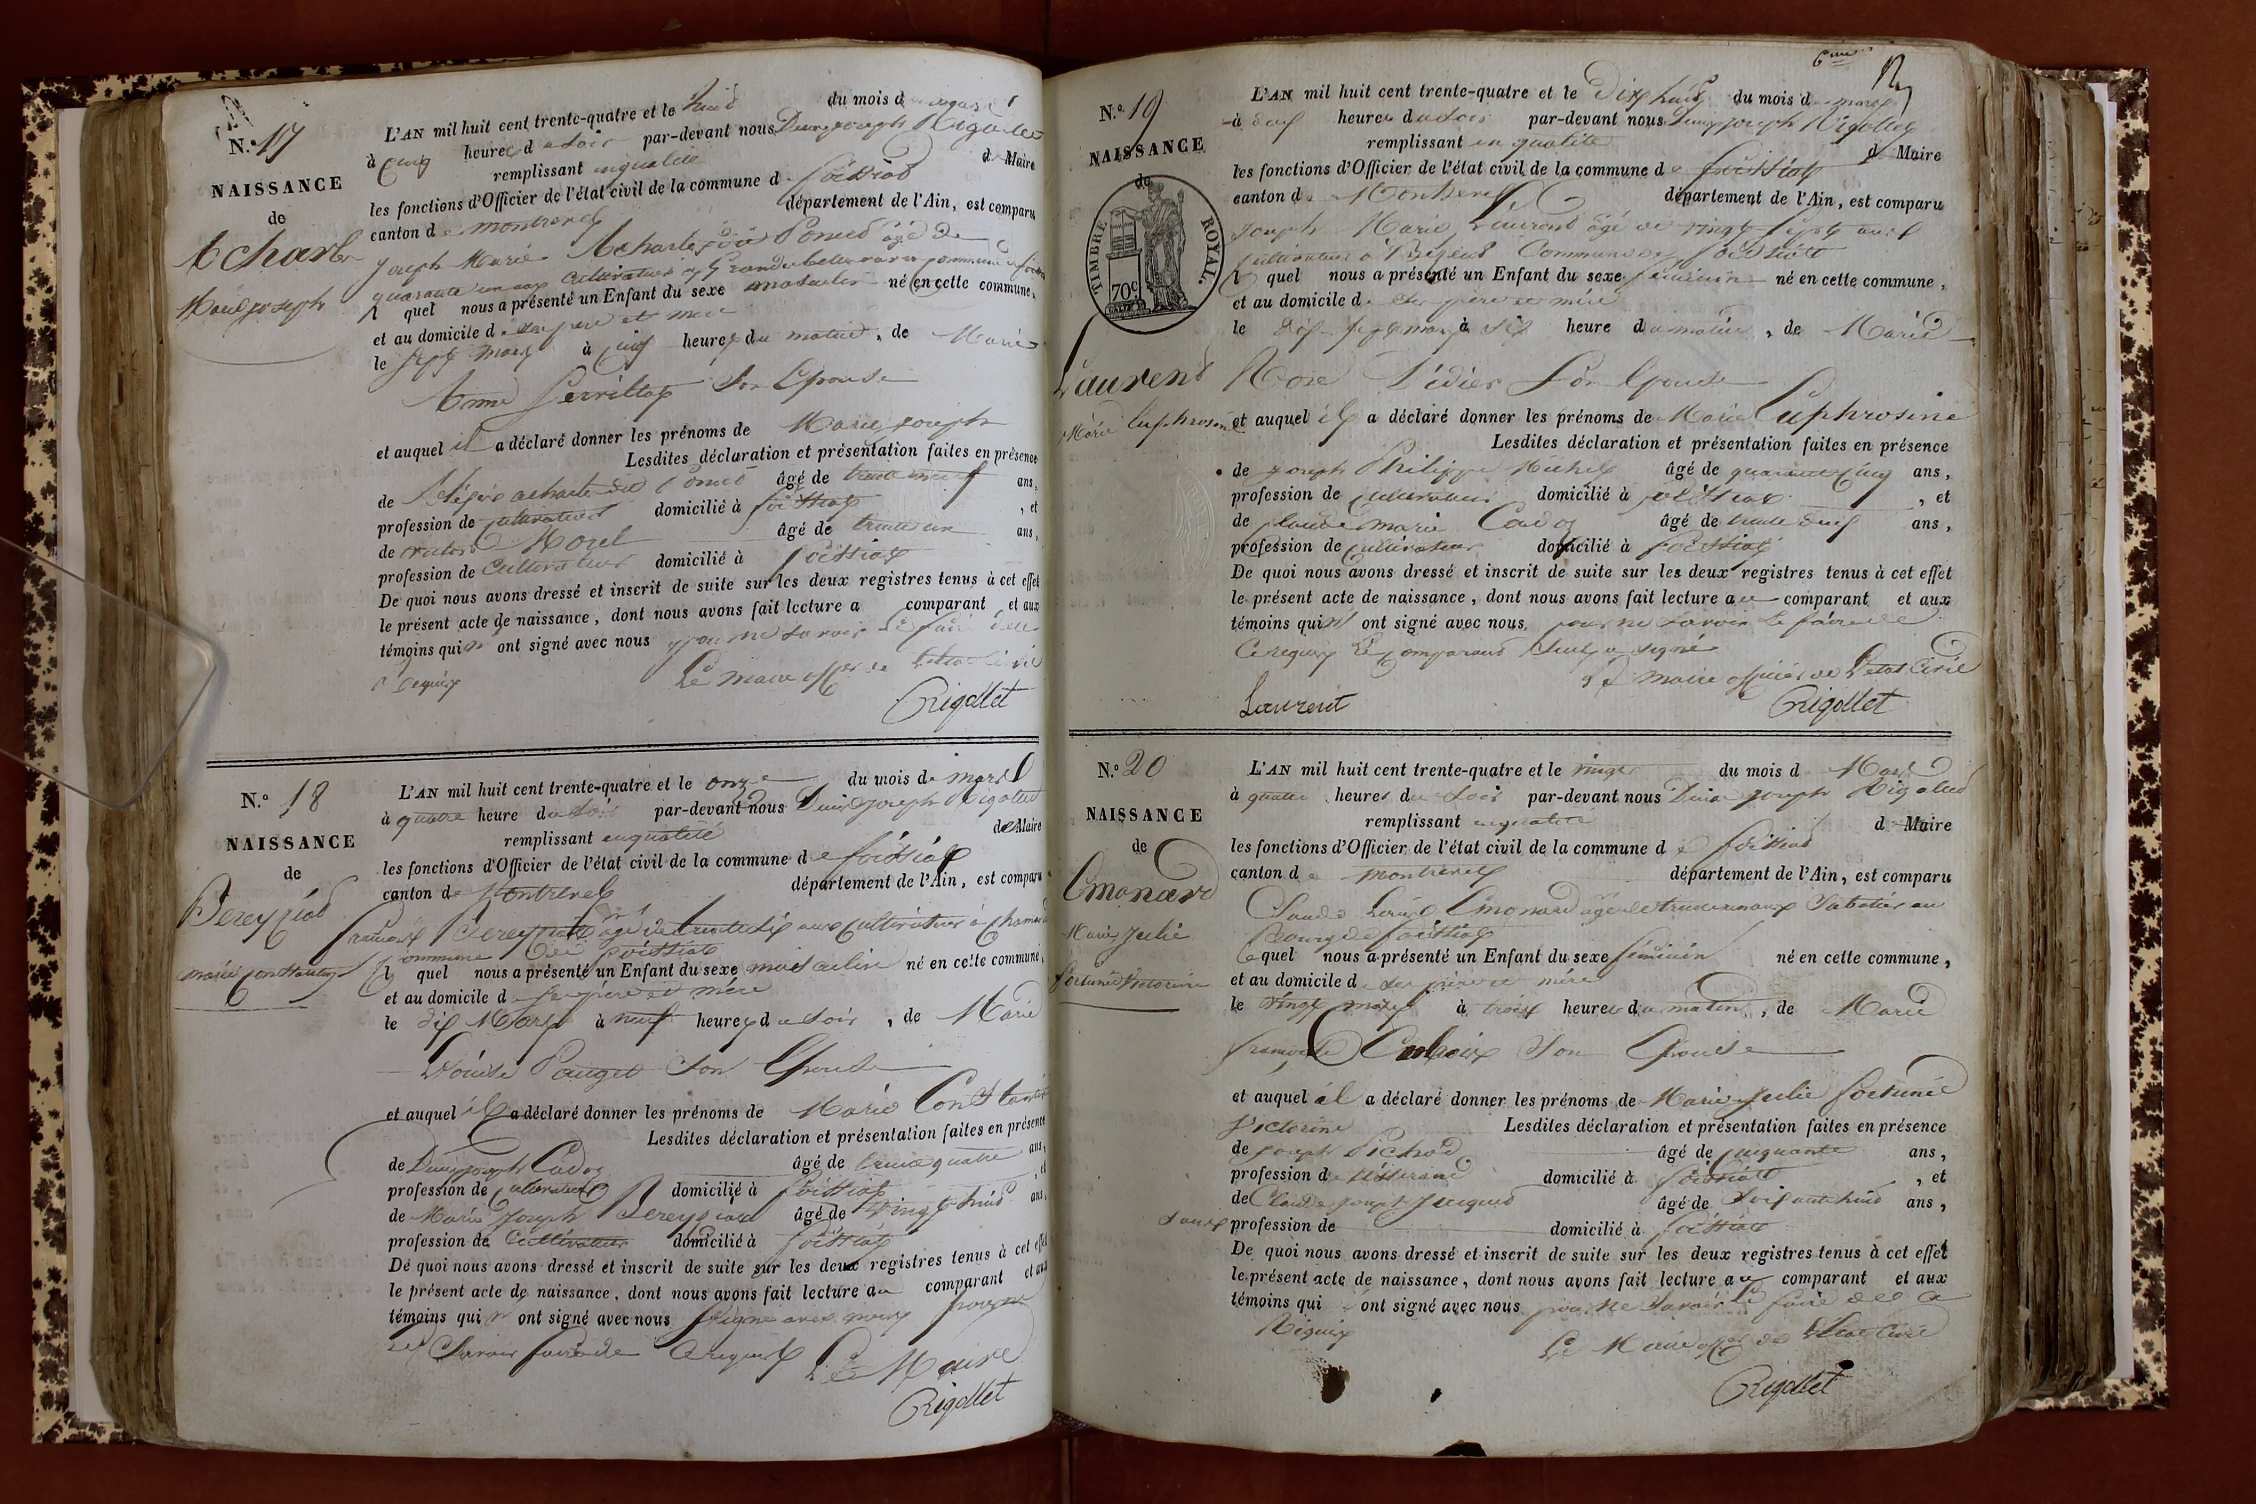 N.° 17
NAISSANCE
de
Acharle
Marie joseph
L'AN mil huit cent trente-quatre et le huit du mois de mars
à cinq heures du soir par-devant nous Denis joseph Rigollet
remplissant en qualité de Maire
les fonctions d'Officier de l'état civil de la commune de foissiat
canton de montrevel département de l'Ain, est comparu
joseph Marie Acharle dit Poncet âgé de
quarante un ans cultivateur commune
lequel nous a présenté un Enfant du sexe masculin né en cette commune,
et au domicile de ses père et mère
le sept mars à cinq heures du matin, de Marie
Anne son Epouse
et auquel il a déclaré donner les prénoms de Marie joseph
Lesdites déclaration et présentation faites en présence
de acharle dit Poncet âgé de trente neuf ans,
profession de cultivateur domicilié à foissiat, et
de Morel âgé de trente un ans,
profession de cultivateur domicilié à foissiat
De quoi nous avons dressé et inscrit de suite sur les deux registres tenus à cet effet
le présent acte de naissance, dont nous avons fait lecture a comparant et aux
témoins qui n' ont signé avec nous pour ne savoir le faire de
ce requis Le maire off.er de l'état civil
Rigollet
N.° 18
NAISSANCE
de
Pereyziat
marie constantin
L'AN mil huit cent trente-quatre et le onze du mois de mars
à quatre heure du soir par-devant nous Denis joseph Rigollet
remplissant en qualité de Maire
les fonctions d'Officier de l'état civil de la commune de foissiat
canton de Montrevel département de l'Ain, est comparu
françois Pereyziat âgé de trente six ans cultivateur à
commune de foissiat
lequel nous a présenté un Enfant du sexe masculin né en cette commune,
et au domicile de ses père et mère
le dix Mars à neuf heures du soir, de Marie
Louise Pauget son Epouse
et auquel il a déclaré donner les prénoms de Marie Constantin
Lesdites déclaration et présentation faites en présence
de Denis joseph Cadoz âgé de trente quatre ans,
profession de cultivateur domicilié à foissiat, et
de Marie Joseph Pereyziat âgé de vingt huit ans,
profession de cultivateur domicilié à foissiat
De quoi nous avons dressé et inscrit de suite sur les deux registres tenus à cet effet
le présent acte de naissance, dont nous avons fait lecture au comparant et aux
témoins qui n' ont signé avec nous signé avec nous pour
ne savoir faire de ce requis Le Maire
Rigollet
6me
N.° 19
NAISSANCE
de
TIMBRE ROYAL.
70c
Laurent
Marie Euphrosine
L'AN mil huit cent trente-quatre et le dix huit du mois de mars
à deux heures du soir par-devant nous Denis joseph Rigollet
remplissant en qualité de Maire
les fonctions d'Officier de l'état civil de la commune de foissiat
canton de Montrevel département de l'Ain, est comparu
joseph Marie Laurent âgé de vingt sept ans
cultivateur à commune de foissiat
lequel nous a présenté un Enfant du sexe féminin né en cette commune,
et au domicile de ses père et mère
le dix sept mars à six heure du matin, de Marie
Rose Didier son Epouse
et auquel il a déclaré donner les prénoms de Marie Euphrosine
Lesdites déclaration et présentation faites en présence
de joseph Philippe Michel âgé de quarante cinq ans,
profession de cultivateur domicilié à foissiat, et
de claude marie Cadoz âgé de trente deux ans,
profession de cultivateur domicilié à foissiat
De quoi nous avons dressé et inscrit de suite sur les deux registres tenus à cet effet
le présent acte de naissance, dont nous avons fait lecture au comparant et aux
témoins qui n' ont signé avec nous pour ne savoir le faire de
ce requis Le comparant seul a signé
Le maire officier de l'état civil
Laurent Rigollet
N.° 20
NAISSANCE
de
Emonard
Marie Julie
fortunée Victorine
L'AN mil huit cent trente-quatre et le vingt du mois de Mars
à quatre heures du soir par-devant nous Denis joseph Rigollet
remplissant en qualité de Maire
les fonctions d'Officier de l'état civil de la commune de foissiat
canton de montrevel département de l'Ain, est comparu
Claude Louis Emonard âgé de trente ans Sabotier au
Bourg de foissiat
lequel nous a présenté un Enfant du sexe féminin né en cette commune,
et au domicile de ses père et mère
le vingt mars à trois heures du matin, de Marie
françoise son Epouse
et auquel il a déclaré donner les prénoms de Marie Julie fortunée
Victorine Lesdites déclaration et présentation faites en présence
de joseph Pichod âgé de cinquante ans,
profession de tisserand domicilié à foissiat, et
de Claude joseph Jacquet âgé de soixante huit ans,
sans profession de domicilié à foissiat
De quoi nous avons dressé et inscrit de suite sur les deux registres tenus à cet effet
le présent acte de naissance, dont nous avons fait lecture au comparant et aux
témoins qui n' ont signé avec nous pour ne savoir le faire de ce
Requis Le Maire off.er de l'état civil
Rigollet